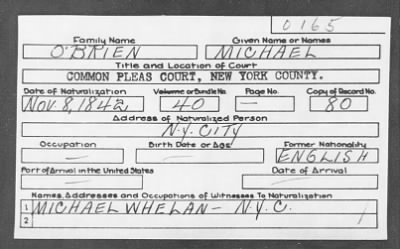 0165
Family Name Given Name or Names
O'BRIEN MICHAEL
Title and Location of Court
COMMON PLEAS COURT, NEW YORK COUNTY.
Date of Naturalization Volume or Bundle No. Page No. Copy of Record No.
Nov. 8, 1842 40 — 80
Address of Naturalized Person
N.Y. CITY
Occupation Birth Date or Age Former Nationality
— — ENGLISH
Port of Arrival in the United States Date of Arrival
— —
Names, Addresses and Occupations of Witnesses To Naturalization
1 MICHAEL WHELAN — N.Y.C.
2